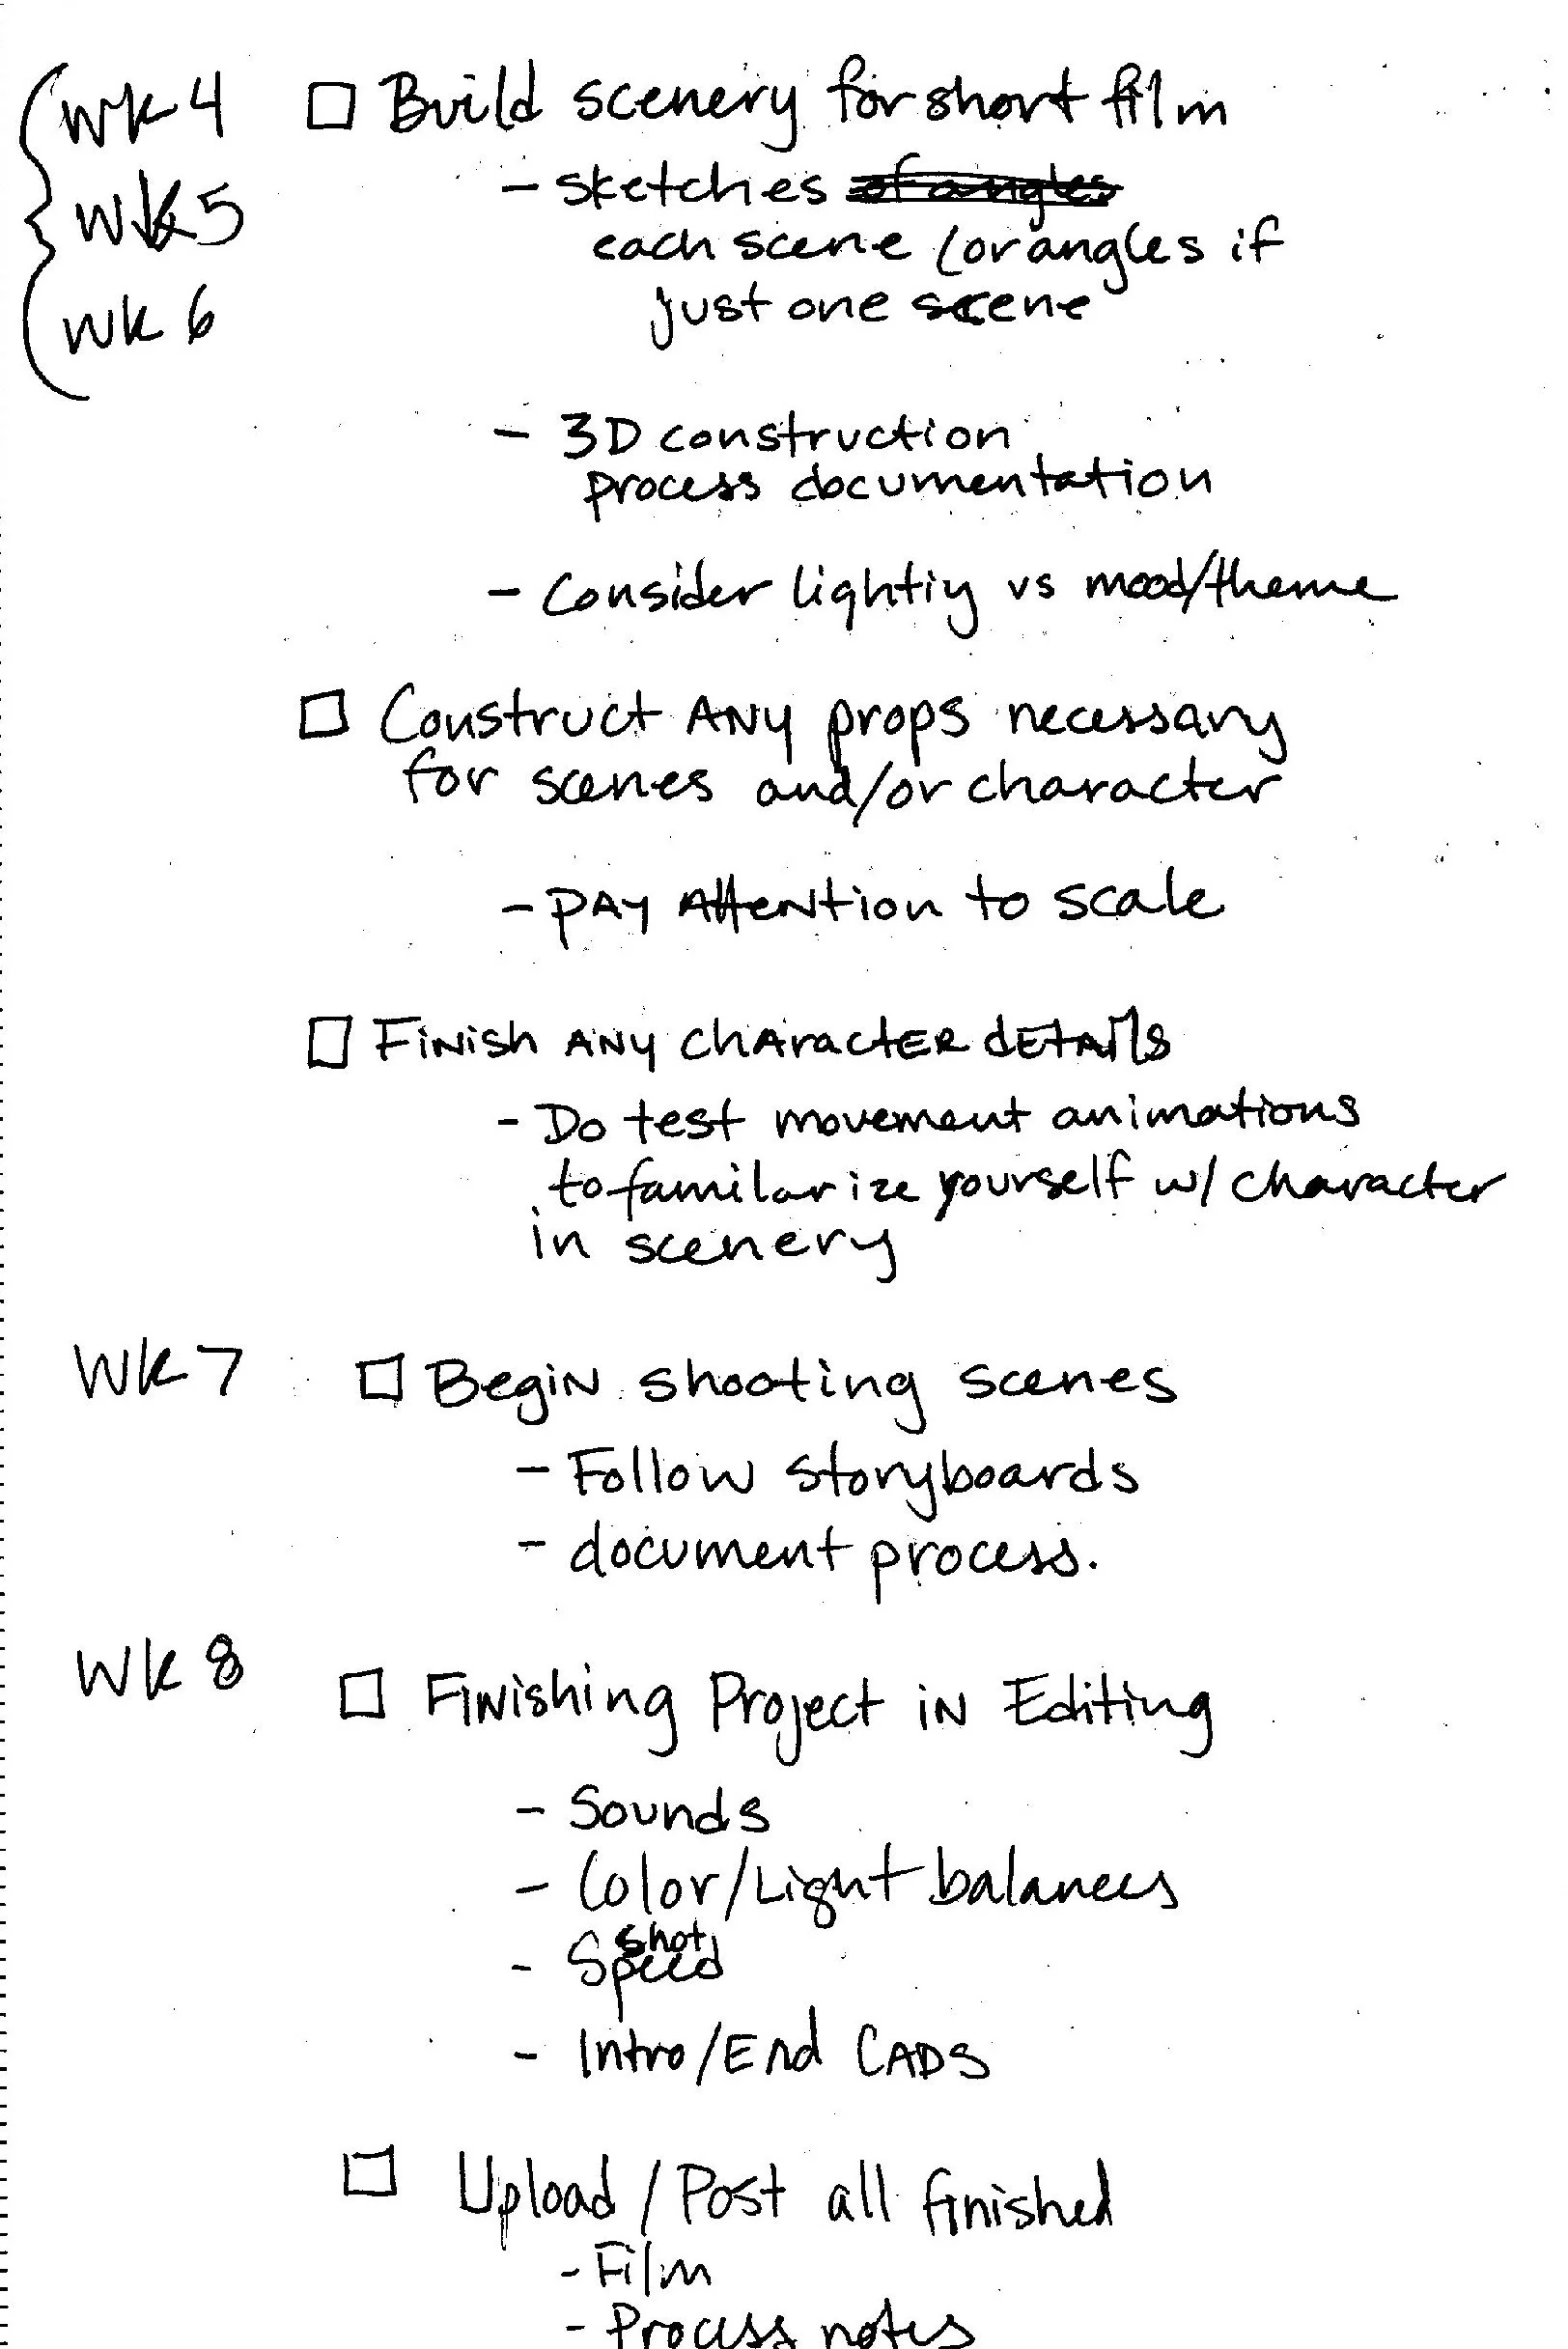 wk 4 □ Build scenery for short film
- sketches of angles
wk 5
each scene (or angles if
wk 6
just one scene
- 3D construction
process documentation
- Consider lightiy vs mood/theme
□ Construct ANY props necessary
for scenes and/or character
- PAY AttenNtion to scale
□ FiNish ANY chAracTER dETAils
- Do test movement animations
to familarize yourself w/ character
in scenery
Wk 7 □ BegiN shooting scenes
- Follow storyboards
- document process.
Wk 8 □ FiNishing Project iN Editing
- Sounds
- Color/Light balances
shot
- Speed
- Intro/End CADS
□ Upload / Post all finished
- Film
- Process notes